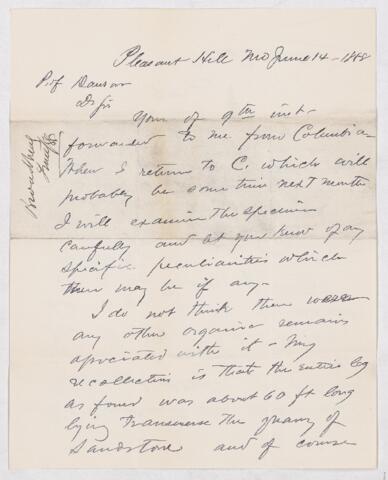 Pleasant Hill Mo June 14 - 1888
Prof Dawson
Dr Sir
Yours of 9th inst -
forwarded to me from Columbia -
When I return to C. which will
probably be some time next month
I will examine the specimen
carefully and let you know of any
specific peculiarities which
there may be if any -
I do not think there were
any other organic remains
associated with it - My
recollection is that the entire log
as found was about 60 ft long
lying transverse the quarry of
Sandstone and of course
Broadhead
June 14/88